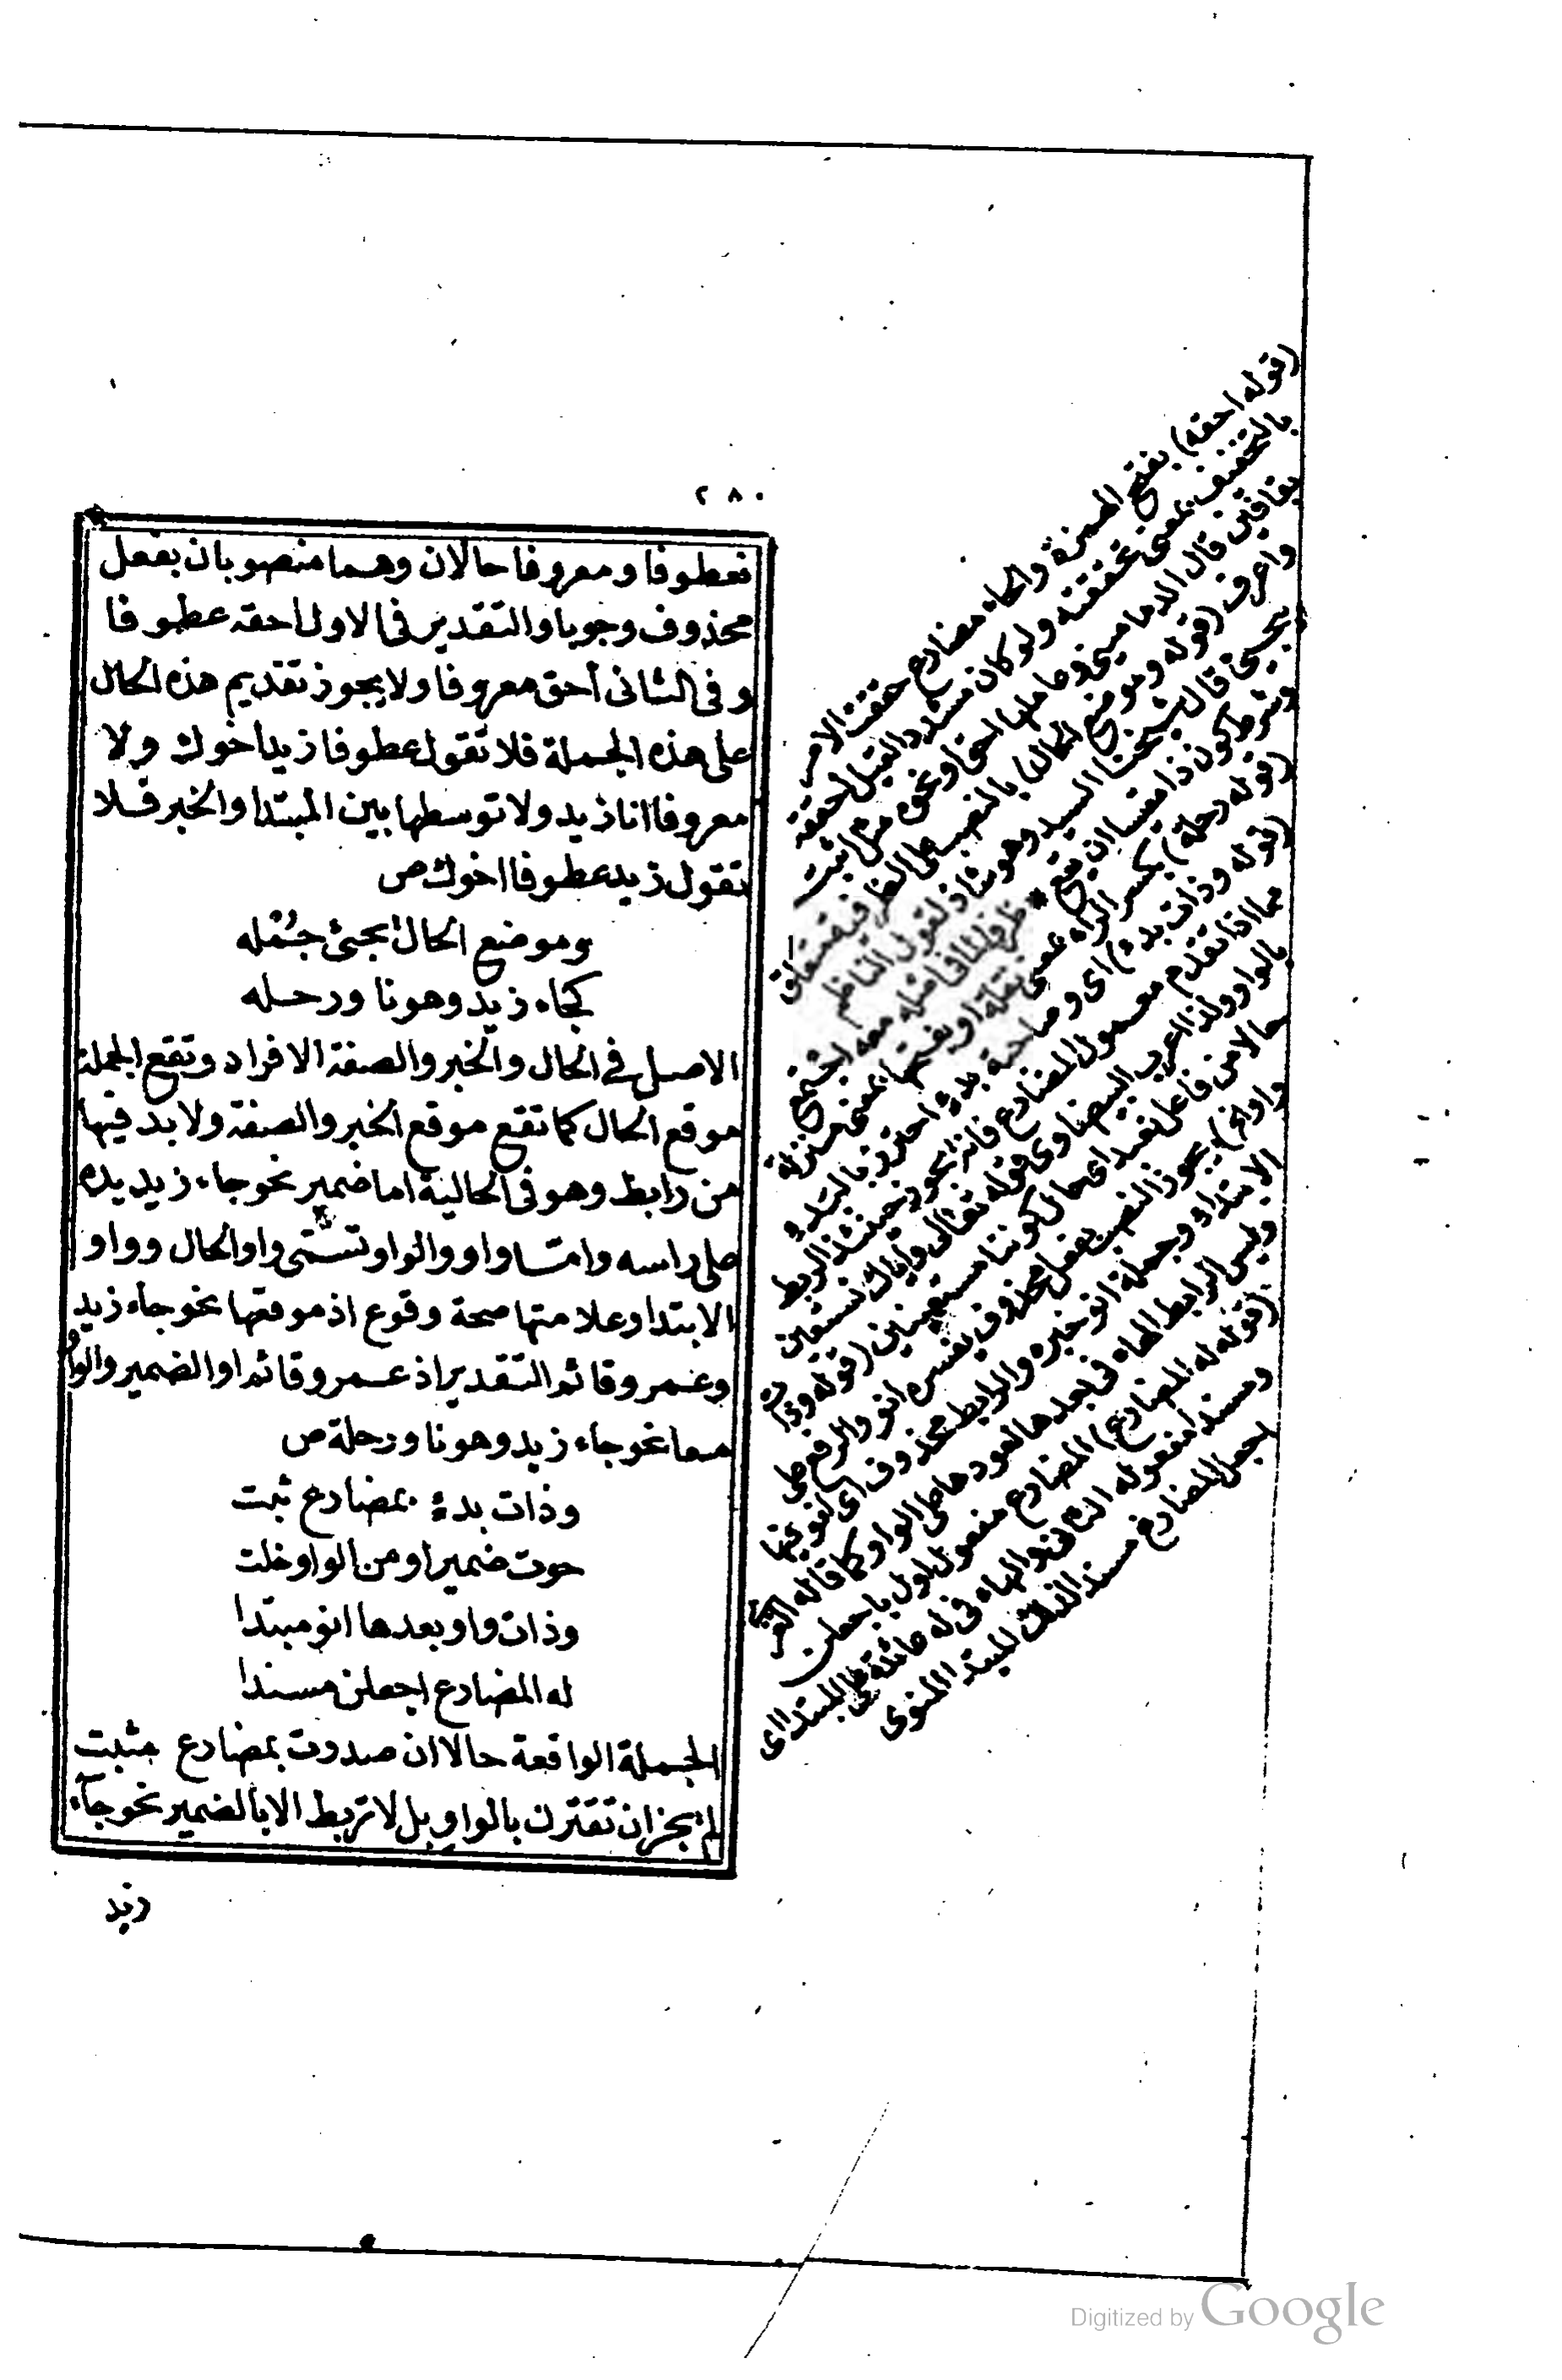 ٢٨٠
فعطوفا ومعروفا حالان وهما منصوبان بفعل
محذوف وجوبا والتقدير فى الاول احقه عطوفا
وفى الثانى أحق معروفا ولا يجوز تقديم هذه الحال
على هذه الجملة فلا تقول عطوفا زيد أخوك ولا
معروفا انا زيد ولا توسطها بين المبتدا والخبر فلا
تقول زيد عطوفا اخوك ص
وموضع الحال تجئ جمله
كجاء زيد وهو نا و رحله
الاصل فى الحال والخبر والصفة الافراد وتقع الجملة
موقع الحال كما تقع موقع الخبر والصفة ولا بد فيها
من رابط وهو فى الحالية اما ضمير نحو جاء زيد يده
على راسه واما واو والواو تسمى واو الحال وواو
الابتدا وعلامتها صحة وقوع اذ موقعها نحو جاء زيد
وعمرو قائم التقدير اذ عمرو قائم او الضمير والواو
معا نحو جاء زيد وهو نا و رحلة ص
وذات بدء بمضارع ثبت
حوت ضميرا ومن الواو خلت
وذات واو بعدها انو مبتدا
له المضارع اجعلن مسندا
الجملة الواقعة حالا ان صدرت بمضارع مثبت
لم يجز ان تقترن بالواو بل لا تربط الا بالضمير نحو جاء
زيد
(قوله احقه) بفتح الهمزة والحاء مضارع حققت الامر
بالتخفيف بمعنى تحققته ولو كان مشدد القيل احققه
بقافين قال الدمامينى وعاملها احق او نحوه مثل اثبت
واعرف (قوله وموضع الحال) بالنصب على الظرفية متعلق
بتجئ قال شيخنا السيد وهو شاذ لقول الناظم
وشرط كون ذا مقيسا ان يقع * ظرفا لما فى اصله معه اجتمع
(قوله رحلة) بكسر الراء بمعنى
(قوله وذات بدء) اى وصاحبة بدء احترز بالبدء
مما اذا تقدم معمول المضارع فانه يجوز حينئذ الربط
بالواو ولذا اعرب البيضاوى قوله تعالى واياك نستعين
حالا من فاعل نعبد اى حال كوننا مستعينين (قوله وذات
واو الخ) يجوز النصب بفعل محذوف يفسره انو والرفع على
الابتداء وجملة انو خبره والرابط محذوف اى
وليس الرابط الهاء فى بعدها لعودها على الواو كما قاله
(قوله له المضارع) المضارع مفعول اول باجعلن
ومسندا مفعوله الثانى والهاء فى له عائدة على المبتدا اى
اجعل المضارع مسندا للمبتدا المنوى
Digitized by Google